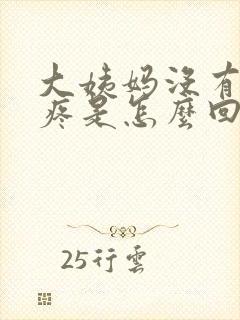 大姨妈没有
疼是怎麼回
25行雲